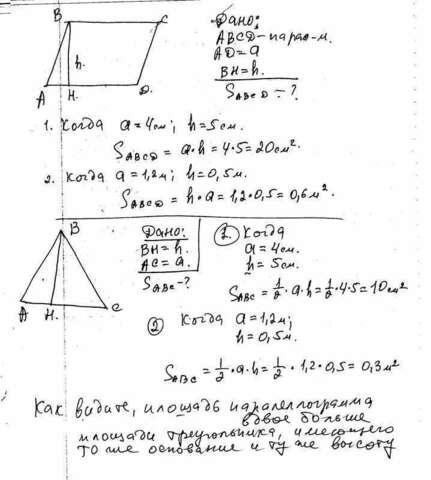 B C
Дано:
ABCD-парал-м.
AD=a
BH=h.
S_ABCD=?
h.
A H. D.
1. Когда a=4см; h=5см.
S_ABCD = a·h = 4·5=20см².
2. Когда a=1,2м; h=0,5м.
S_ABCD = h·a = 1,2·0,5=0,6м².
B
Дано:
BH=h.
AC=a.
S_ABC-?
A H. C
1. Когда
a=4см.
h=5см.
S_ABC=½·a·h=½·4·5=10см²
2 Когда a=1,2м;
h=0,5м.
S_ABC=½·a·h=½·1,2·0,5=0,3м²
Как видите, площадь параллеллограмма
вдвое больше
площади треугольника, имеющего
то же основание и ту же высоту